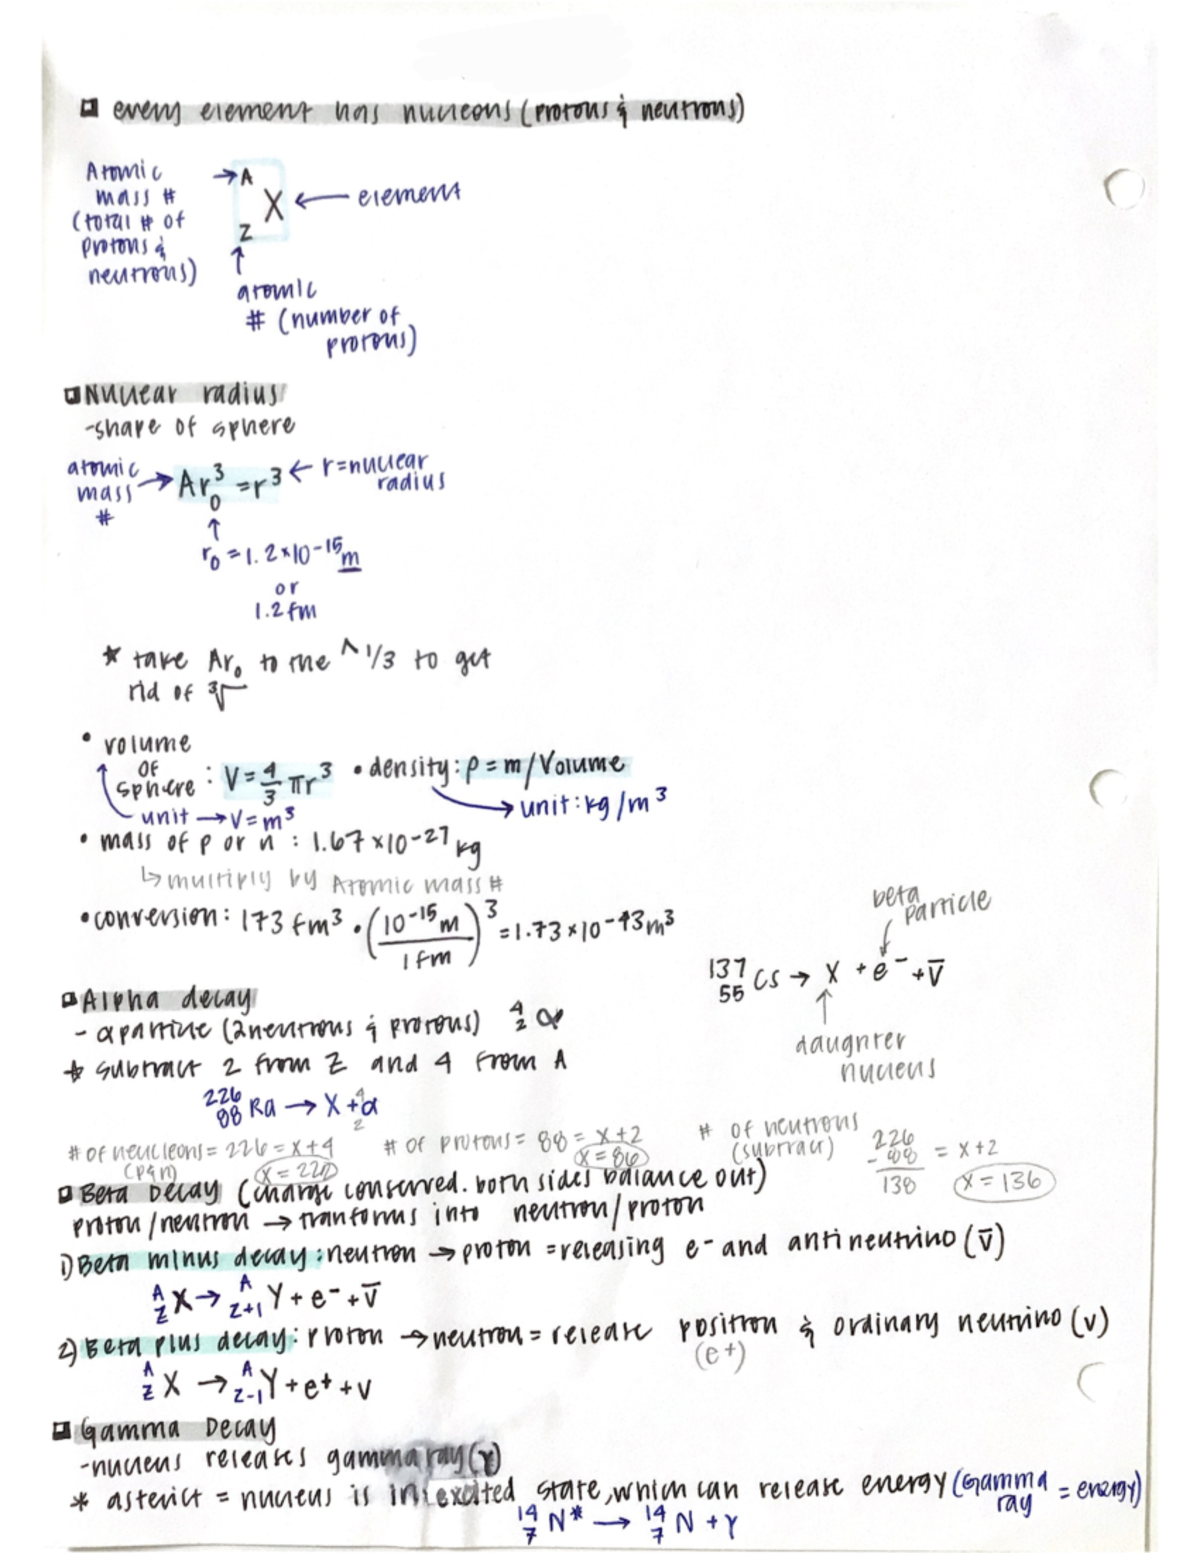 every element has nucleons (protons & neutrons)
Atomic mass # (total # of protons & neutrons)
→ A
X ← element
Z
↑
atomic # (number of protons)
Nuclear radius
- shape of sphere
atomic mass # → Ar₀³ = r³ ← r = nuclear radius
↑
r₀ = 1.2 × 10⁻¹⁵ m
or
1.2 fm
* take Ar₀ to the ^1/3 to get
rid of ³√
• volume of sphere : V = 4/3 πr³ • density: ρ = m/Volume
unit → V = m³ → unit: kg/m³
• mass of p or n : 1.67 × 10⁻²⁷ kg
↳ multiply by Atomic mass #
• conversion: 173 fm³ • (10⁻¹⁵ m / 1 fm)³ = 1.73 × 10⁻⁴³ m³
beta particle
¹³⁷₅₅Cs → X + e⁻ + v̄
daughter nucleus
Alpha decay
- α partine (2 neutrons & protons) ⁴₂α
* subtract 2 from Z and 4 from A
²²⁶₈₈Ra → X + ⁴₂α
# of neucleons = 226 = x + 4 # of protons = 88 = x + 2 # of neutrons (subtract) 226 - 88 = x + 2
(p&n) x = 222 x = 86 138 x = 136
Beta Decay (charge conserved. both sides balance out)
proton/neutron → tranforms into neutron/proton
1) Beta minus decay: neutron → proton = releasing e⁻ and antineutrino (v̄)
ᴬ_Z X → ᴬ_Z+1 Y + e⁻ + v̄
2) Beta plus decay: proton → neutron = release positron & ordinary neutrino (v)
(e⁺)
ᴬ_Z X → ᴬ_Z-1 Y + e⁺ + v
Gamma Decay
- nucleus releases gamma ray (γ)
* asterict = nucleus is in excited state, which can release energy (Gamma ray = energy)
¹⁴₇N* → ¹⁴₇N + γ